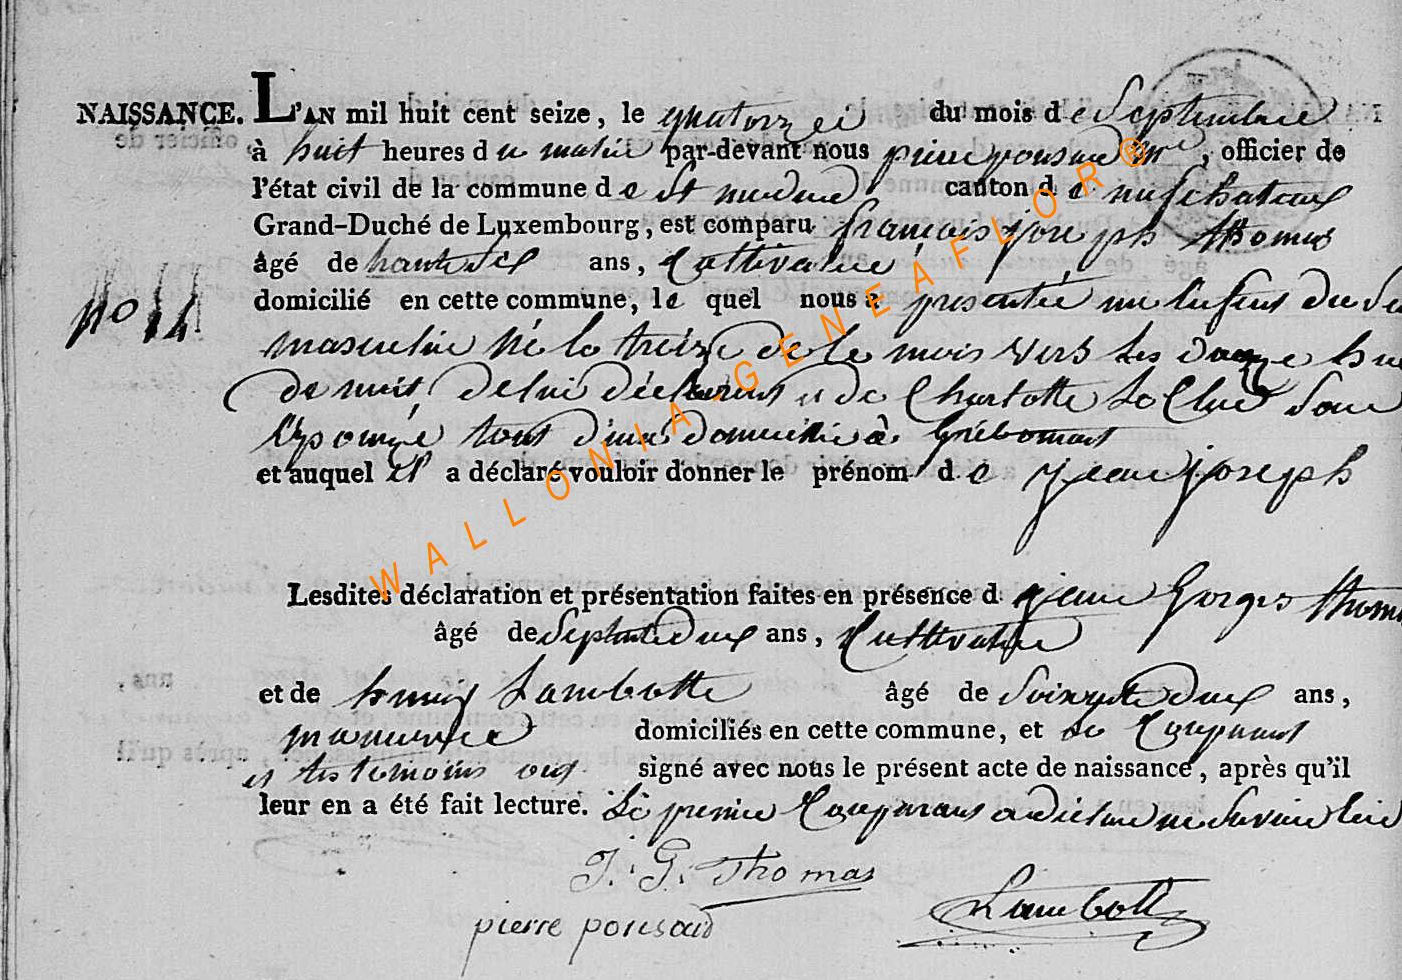 NAISSANCE. L'AN mil huit cent seize, le quatorze du mois de Septembre
à huit heures du matin par-devant nous pierre ponsard mre, officier de
l'état civil de la commune de St medard canton de neufchateau
Grand-Duché de Luxembourg, est comparu françois joseph thomas
âgé de ans, Cultivateur
domicilié en cette commune, le quel nous a presentée un Enfent du
No 44
masculin né le treize de le mois vers les onze
de nuit de lui déclarent et de Charlotte
Epouse tout d'eux domicilié à Gribomont
et auquel il a déclaré vouloir donner le prénom de jean joseph
Lesdites déclaration et présentation faites en présence de jean Gorges thomas
âgé de Septente deux ans, Cultivateur
et de henry Lambotte âgé de Soixante deux ans,
manuvre domiciliés en cette commune, et Le Comparant
et les temoins ont signé avec nous le présent acte de naissance, après qu'il
leur en a été fait lecture. Le premier Comparant a declare ne savoir
J. G. Thomas
pierre ponsard
Lambotte
WALLONIA-GENEAFLOR®